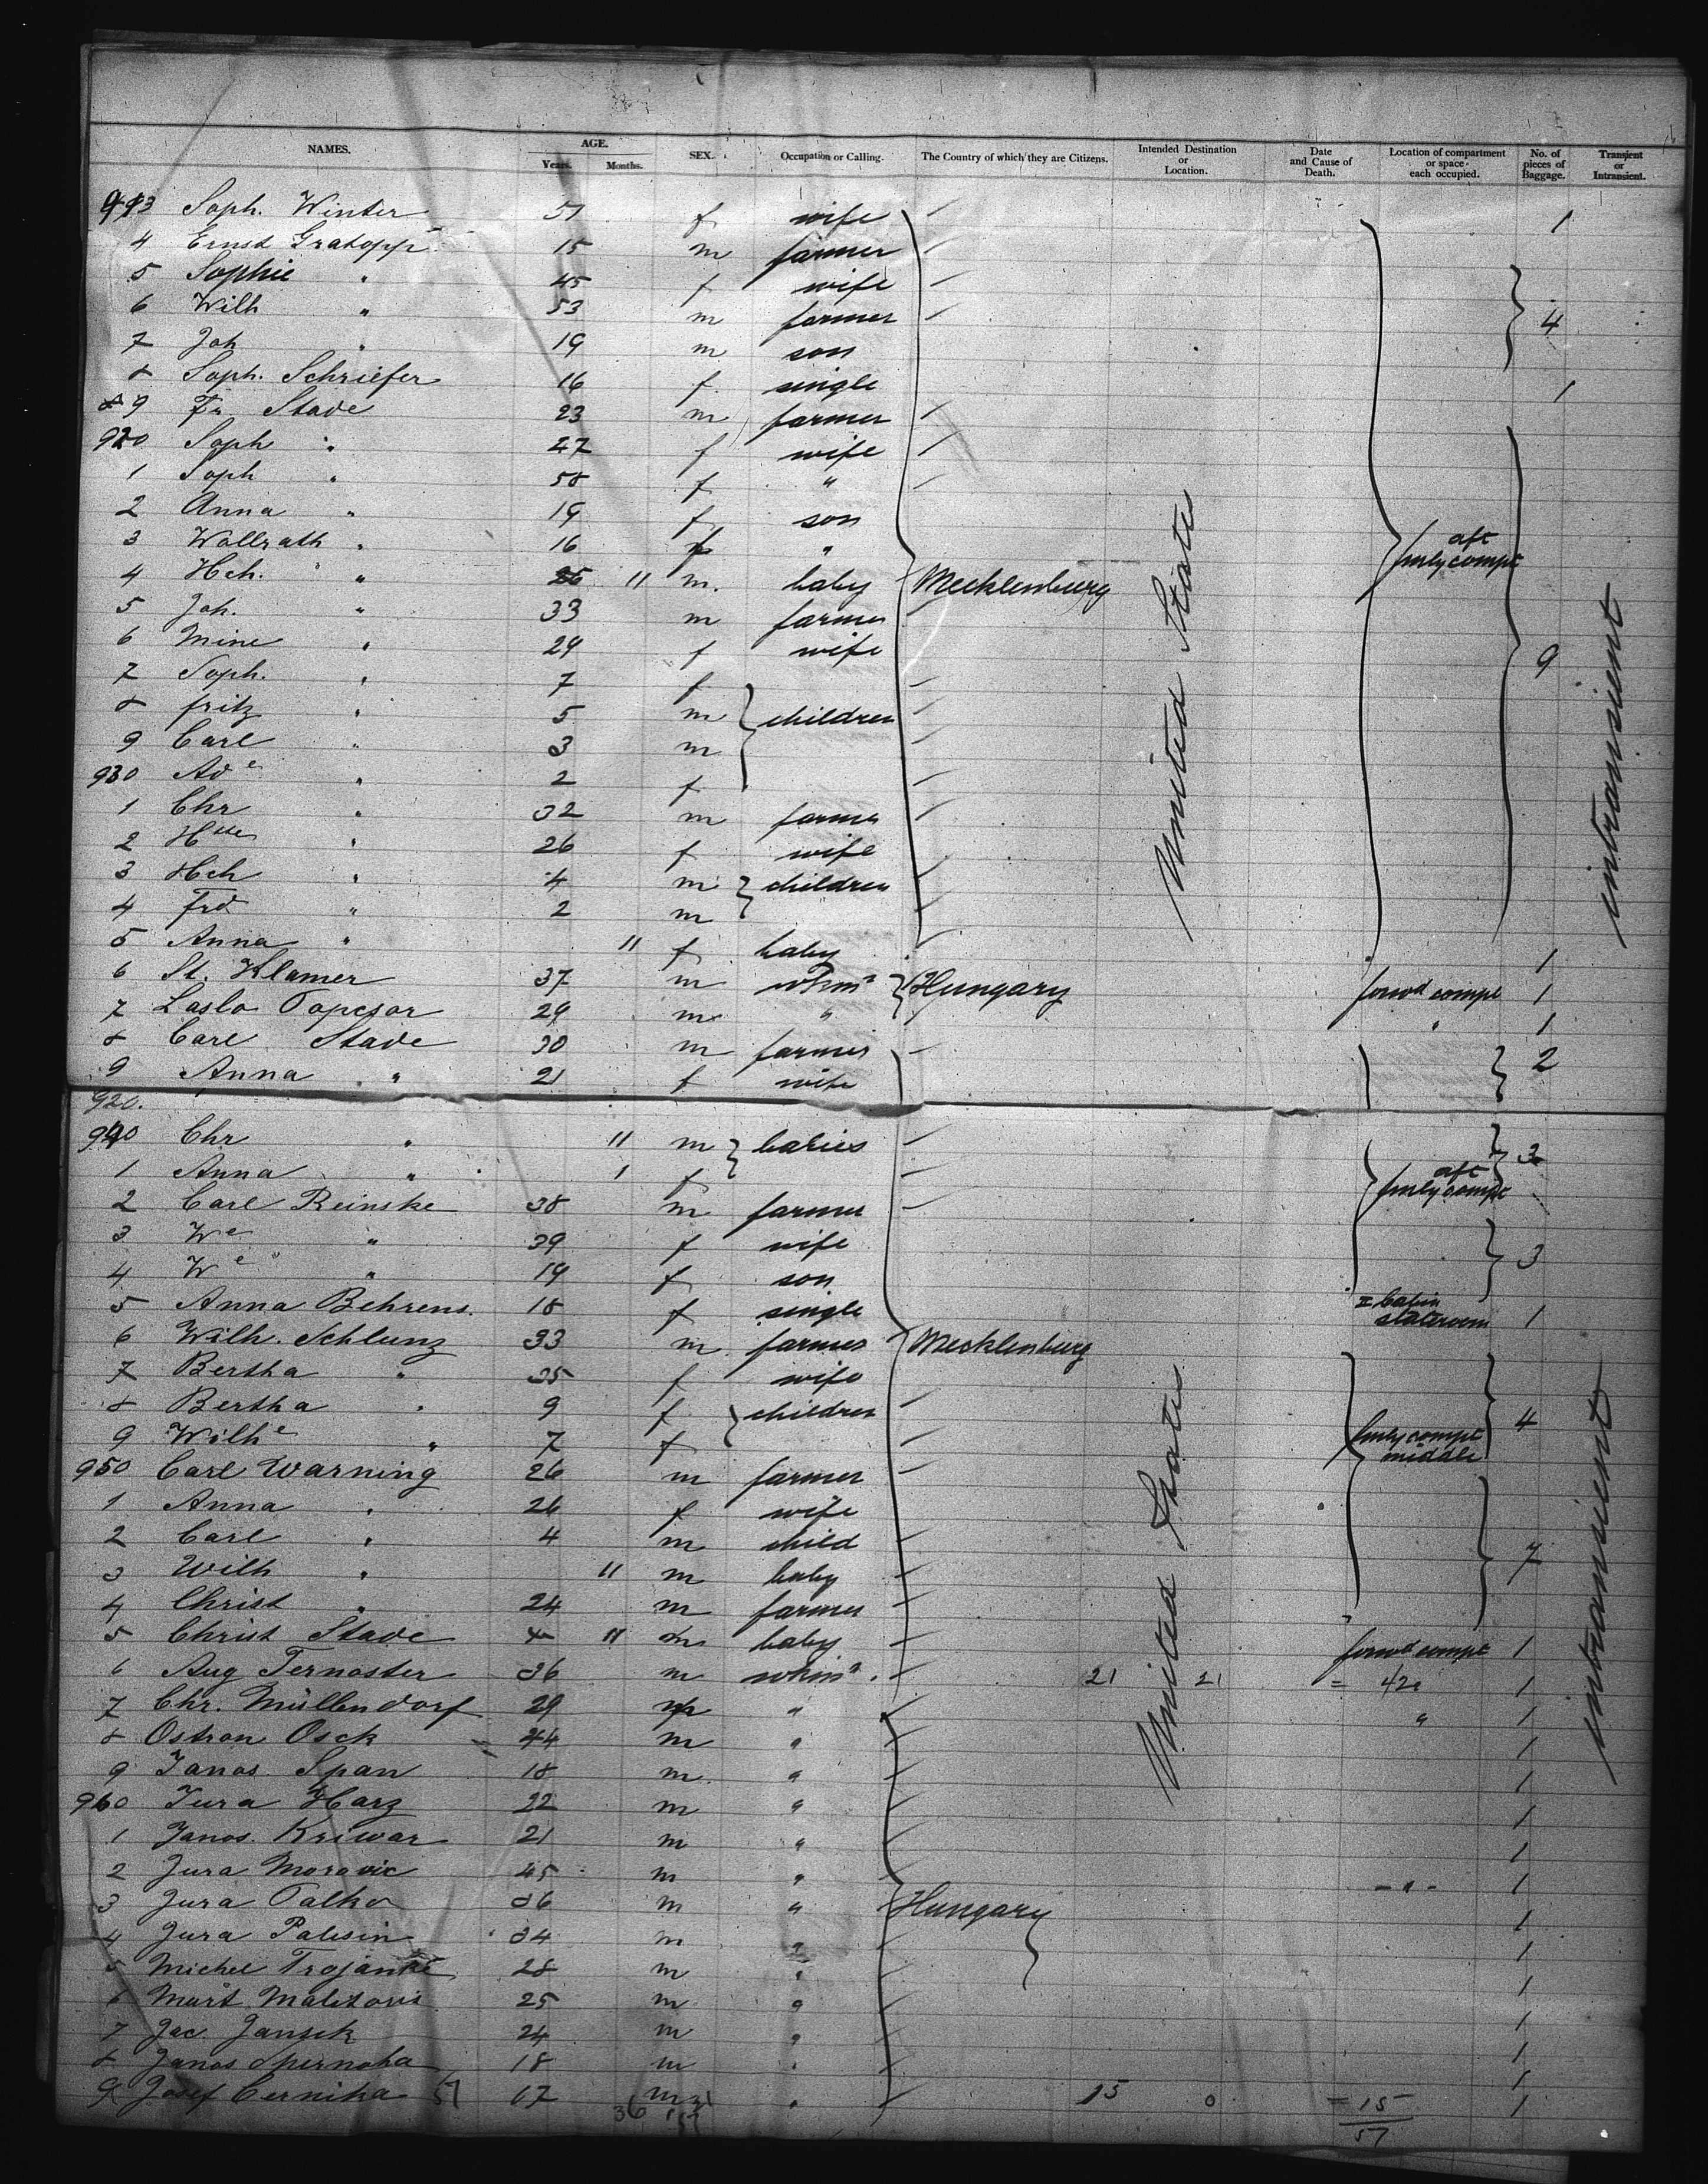 NAMES. AGE. Years. Months. SEX. Occupation or Calling. The Country of which they are Citizens. Intended Destination or Location. Date and Cause of Death. Location of compartment or space each occupied. No. of pieces of Baggage. Transient or Intransient.
913 Soph. Winter 51 f wife 1
4 Ernst Gratopp 15 m farmer
5 Sophie " 45 f wife
6 Wilh " 53 m farmer 4
7 Joh " 19 m son
8 Soph. Schriefer 16 f single 1
9 Fr. Stade 23 m farmer
920 Soph " 27 f wife
1 Soph " 58 f "
2 Anna " 19 f son
3 Wollrath " 16 "
4 Hch. " 11 m. baby Mecklenburg United States aft fmly compt
5 Joh. " 33 m farmer
6 Mine " 29 f wife 9 intransient
7 Soph. " 7 f
8 fritz " 5 m children
9 Carl " 3 m
930 Ade " 2 f
1 Chr " 32 m farmer
2 Htte " 26 f wife
3 Hch " 4 m children
4 Frd " 2 m
5 Anna " 11 f baby
6 St. Klamer 37 m wkmn Hungary forwd compt 1
7 Laslo Topcsor 29 m " " 1
8 Carl Stade 30 m farmer
9 Anna " 21 f wife 2
920.
940 Chr " 11 m babies
1 Anna " 1 f aft fmly compt 3
2 Carl Reinske 38 m farmer
3 We " 39 f wife
4 We " 19 f son 3
5 Anna Behrens 18 f single II Cabin stateroom 1
6 Wilh. Schlunz 33 m farmer Mecklenburg
7 Bertha " 35 f wife
8 Bertha " 9 f children 4
9 Wilhe " 7 f fmly compt middle
950 Carl Warning 26 m farmer United States intransient
1 Anna " 26 f wife
2 Carl " 4 m child
3 Wilh " 11 m baby 7
4 Christ " 24 m farmer
5 Christ Stade 11 m baby forwd compt 1
6 Aug Ternoster 36 m wkmn 21 21 = 42 1
7 Chr. Müllendorf 29 m " " 1
8 Ostron Osck 44 m " 1
9 Janos Span 18 m " 1
960 Jura Harz 22 m " 1
1 Janos Kriwar 21 m " 1
2 Jura Moravic 45 m " - " - 1
3 Jura Palko 36 m " Hungary 1
4 Jura Palesin 34 m " 1
5 Michel 28 m " 1
6 Mart Malizovis 25 m " 1
7 Jac. Jansek 24 m " 1
8 Janos Spernoha 18 m " 1
9 Josef Cernika 57 17 m " 15 0 = 15 1
36 21
57 57